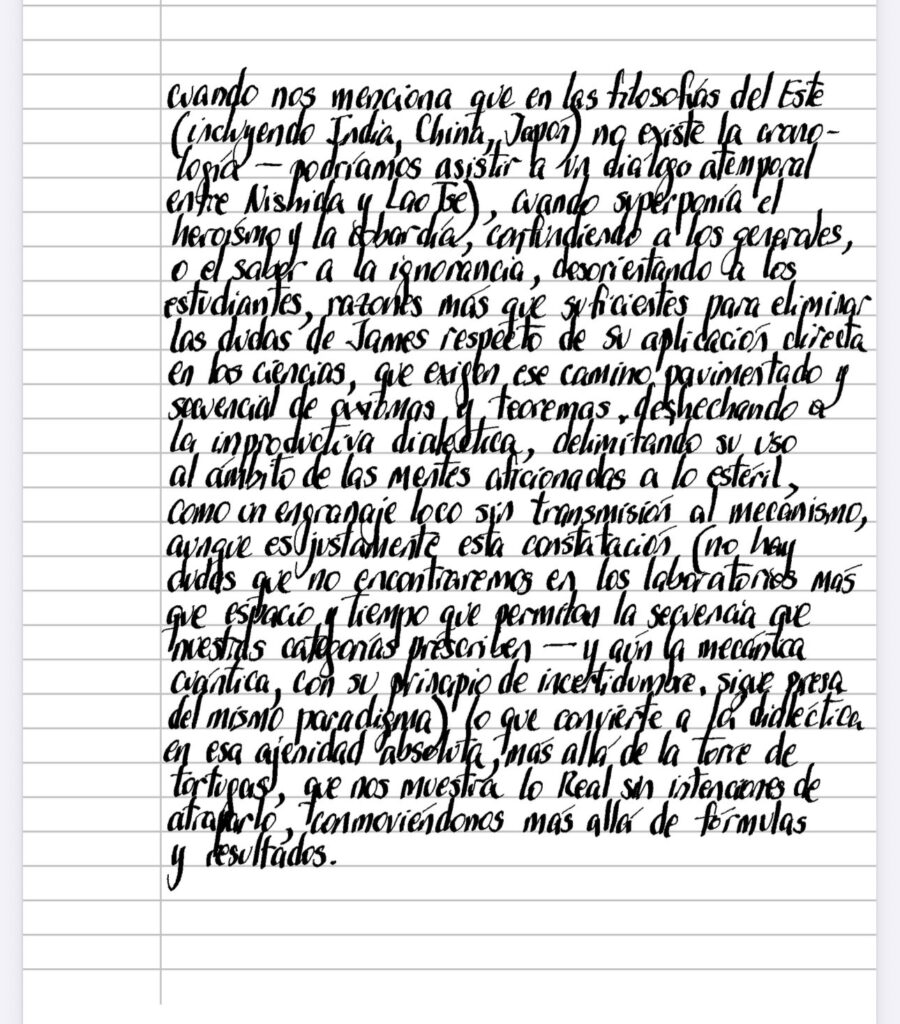 cuando nos menciona que en las filosofías del Este
(incluyendo India, China, Japón) no existe la crono-
logía — podríamos asistir a un diálogo atemporal
entre Nishida y Lao Tse), cuando superponía el
heroísmo y la cobardía, confundiendo a los generales,
o el saber a la ignorancia, desorientando a los
estudiantes, razones más que suficientes para eliminar
las dudas de James respecto de su aplicación directa
en las ciencias, que exigen ese camino pavimentado y
secuencial de axiomas y teoremas, deshechando a
la inproductiva dialéctica, delimitando su uso
al ámbito de las mentes aficionadas a lo estéril,
como un engranaje loco sin transmisión al mecanismo,
aunque es justamente esta constatación (no hay
dudas que no encontraremos en los laboratorios más
que espacio y tiempo que permitan la secuencia que
nuestras categorías prescriben — y aún la mecánica
cuántica, con su principio de incertidumbre, sigue presa
del mismo paradigma) lo que convierte a la dialéctica
en esa ajenidad absoluta, más allá de la torre de
tortugas, que nos muestra lo Real sin intenciones de
atraparlo, conmoviéndonos más allá de fórmulas
y resultados.